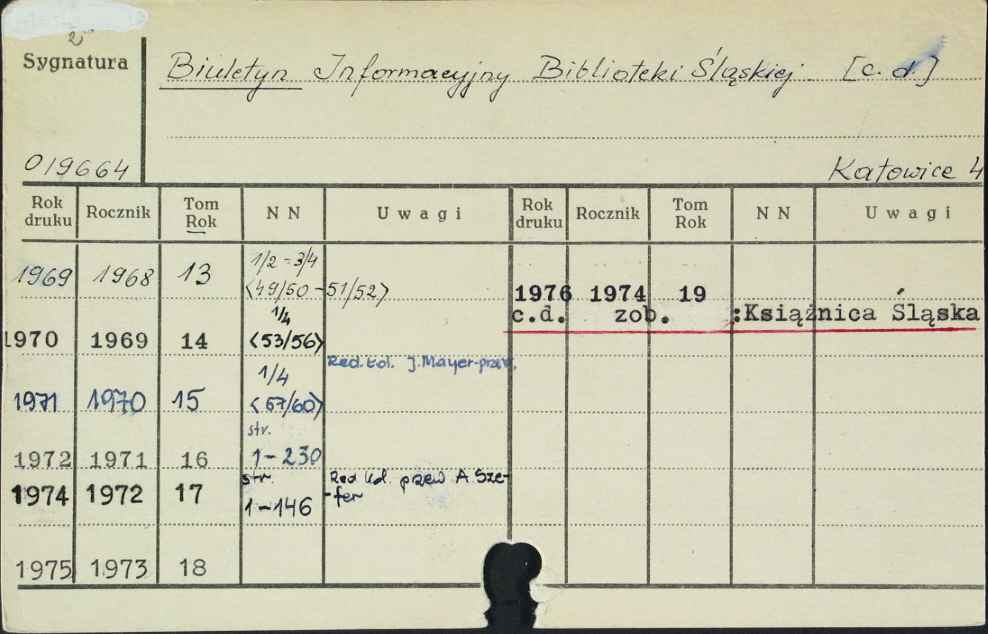 2
Sygnatura
Biuletyn Informacyjny Biblioteki Śląskiej. [c.d.]
019664
Katowice 4
Rok druku Rocznik Tom Rok N N Uwagi Rok druku Rocznik Tom Rok N N Uwagi
1969 1968 13 1/2 - 3/4 <49/50 - 51/52>
1976 1974 19
c.d. zob. :Książnica Śląska
1970 1969 14 1/4 <53/56>
Red. kol. J. Mayer-przew.
1971 1970 15 1/4 <57/60>
1972 1971 16 str. 1-230
1974 1972 17 str. 1-146 Red kol. przew A. Sze-
-fer
1975 1973 18